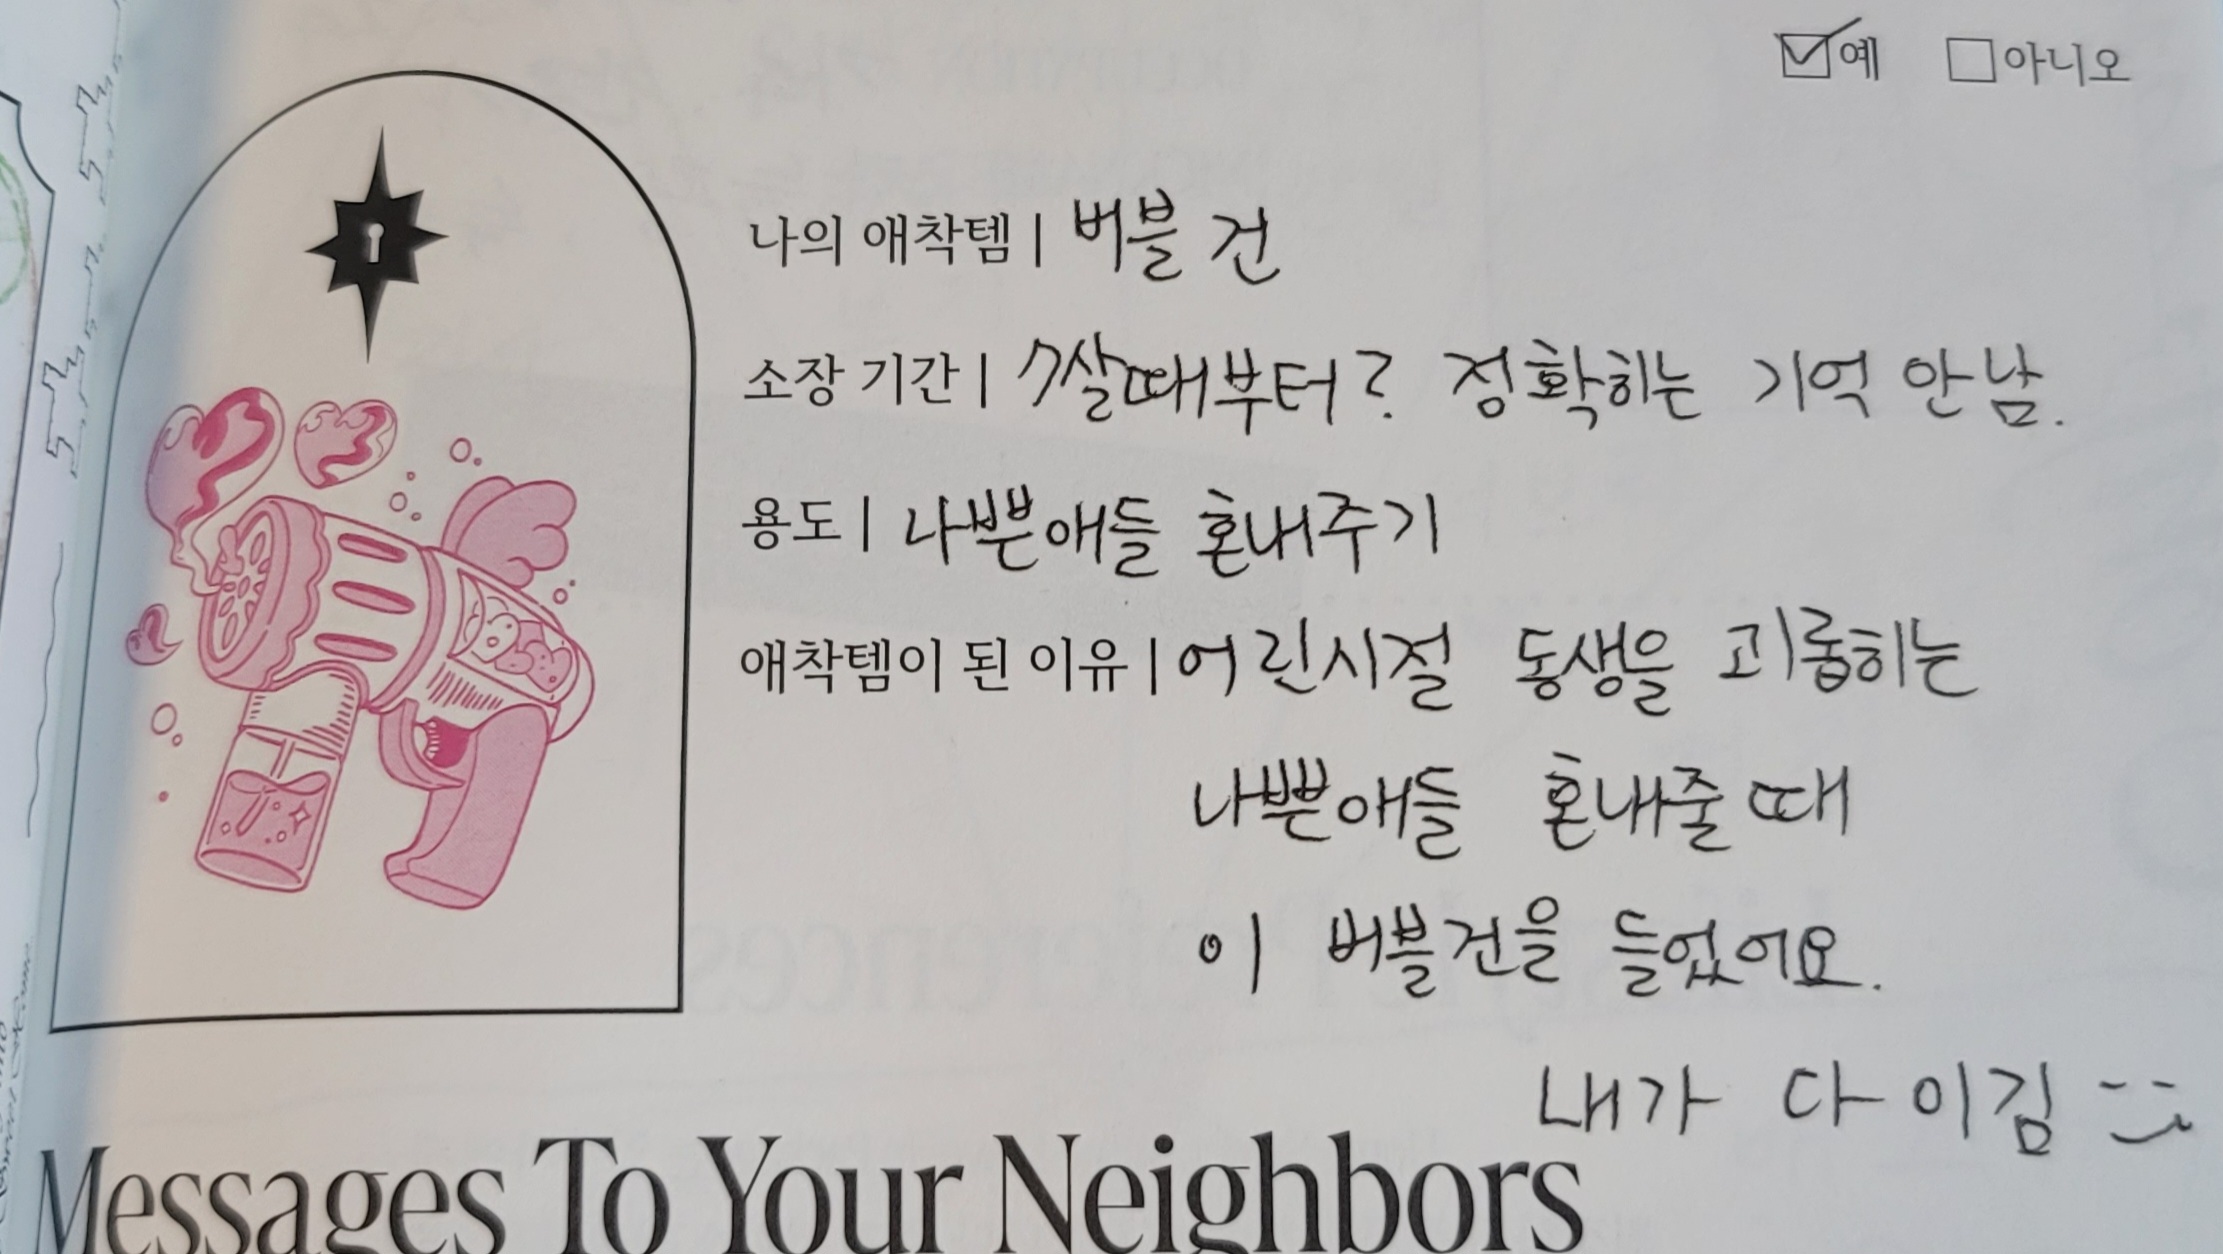 예 아니오
나의 애착템 | 버블 건
소장 기간 | 7살때부터? 정확히는 기억 안남.
용도 | 나쁜애들 혼내주기
애착템이 된 이유 | 어린시절 동생을 괴롭히는
나쁜애들 혼내줄때
이 버블건을 들었어요.
내가 다 이김
Messages To Your Neighbors